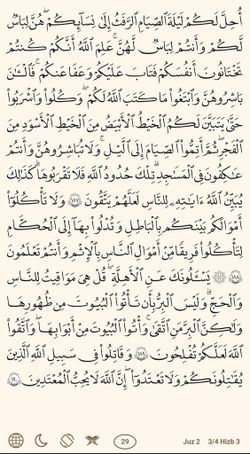 أُحِلَّ لَكُمْ لَيْلَةَ ٱلصِّيَامِ ٱلرَّفَثُ إِلَىٰ نِسَآئِكُمْ ۚ هُنَّ لِبَاسٌ
لَّكُمْ وَأَنتُمْ لِبَاسٌ لَّهُنَّ ۗ عَلِمَ ٱللَّهُ أَنَّكُمْ كُنتُمْ
تَخْتَانُونَ أَنفُسَكُمْ فَتَابَ عَلَيْكُمْ وَعَفَا عَنكُمْ ۖ فَٱلْـَٰٔنَ
بَـٰشِرُوهُنَّ وَٱبْتَغُوا۟ مَا كَتَبَ ٱللَّهُ لَكُمْ ۚ وَكُلُوا۟ وَٱشْرَبُوا۟
حَتَّىٰ يَتَبَيَّنَ لَكُمُ ٱلْخَيْطُ ٱلْأَبْيَضُ مِنَ ٱلْخَيْطِ ٱلْأَسْوَدِ مِنَ
ٱلْفَجْرِ ۖ ثُمَّ أَتِمُّوا۟ ٱلصِّيَامَ إِلَى ٱلَّيْلِ ۚ وَلَا تُبَـٰشِرُوهُنَّ وَأَنتُمْ
عَـٰكِفُونَ فِى ٱلْمَسَـٰجِدِ ۗ تِلْكَ حُدُودُ ٱللَّهِ فَلَا تَقْرَبُوهَا ۗ كَذَٰلِكَ
يُبَيِّنُ ٱللَّهُ ءَايَـٰتِهِۦ لِلنَّاسِ لَعَلَّهُمْ يَتَّقُونَ ١٨٧ وَلَا تَأْكُلُوٓا۟
أَمْوَٰلَكُم بَيْنَكُم بِٱلْبَـٰطِلِ وَتُدْلُوا۟ بِهَآ إِلَى ٱلْحُكَّامِ
لِتَأْكُلُوا۟ فَرِيقًا مِّنْ أَمْوَٰلِ ٱلنَّاسِ بِٱلْإِثْمِ وَأَنتُمْ تَعْلَمُونَ
١٨٨ ۞ يَسْـَٔلُونَكَ عَنِ ٱلْأَهِلَّةِ ۖ قُلْ هِىَ مَوَٰقِيتُ لِلنَّاسِ
وَٱلْحَجِّ ۗ وَلَيْسَ ٱلْبِرُّ بِأَن تَأْتُوا۟ ٱلْبُيُوتَ مِن ظُهُورِهَا
وَلَـٰكِنَّ ٱلْبِرَّ مَنِ ٱتَّقَىٰ ۗ وَأْتُوا۟ ٱلْبُيُوتَ مِنْ أَبْوَٰبِهَا ۚ وَٱتَّقُوا۟
ٱللَّهَ لَعَلَّكُمْ تُفْلِحُونَ ١٨٩ وَقَـٰتِلُوا۟ فِى سَبِيلِ ٱللَّهِ ٱلَّذِينَ
يُقَـٰتِلُونَكُمْ وَلَا تَعْتَدُوٓا۟ ۚ إِنَّ ٱللَّهَ لَا يُحِبُّ ٱلْمُعْتَدِينَ ١٩٠
29 Juz 2 3/4 Hizb 3